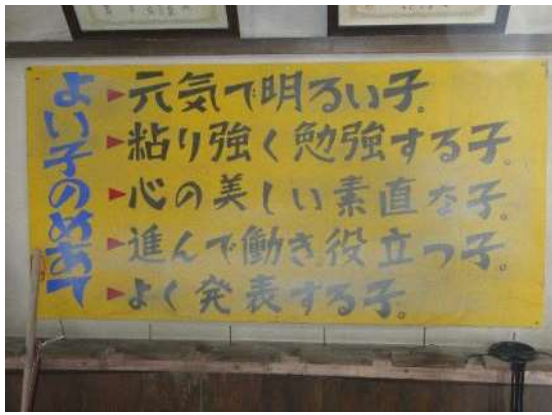 よい子のめあて
元気で明るい子。
粘り強く勉強する子。
心の美しい素直な子。
進んで働き役立つ子。
よく発表する子。